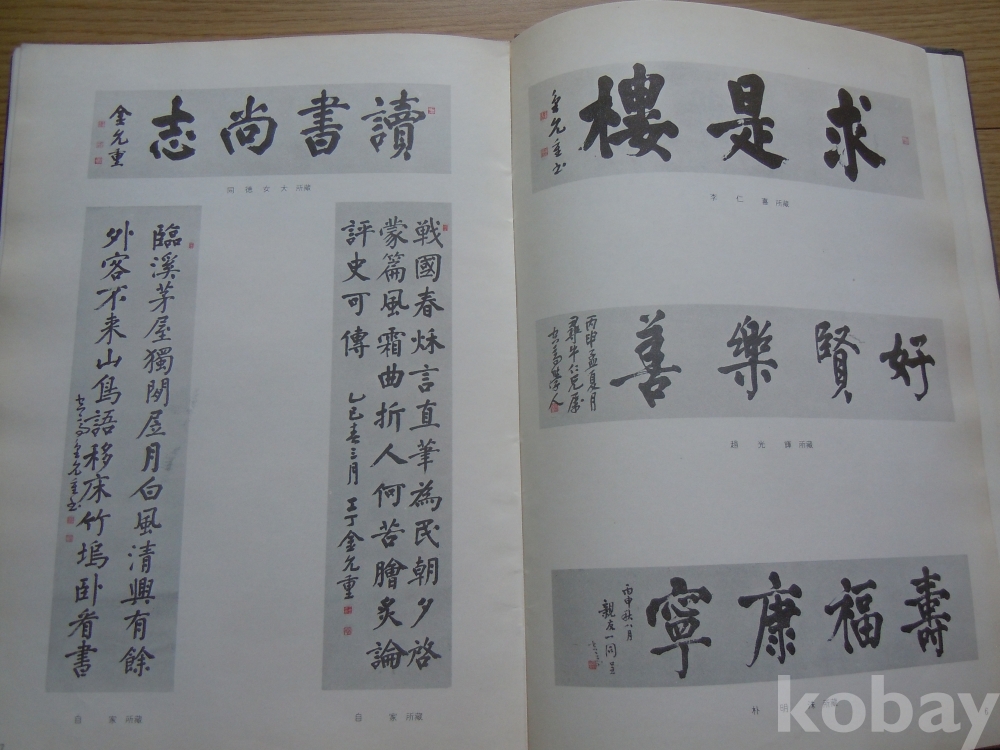 讀書尚志
金允重
同德女大 所藏
戰國春秌言直筆為民朝夕啓
蒙篇風霜曲折人何苦膾炙論
評史可傳
乙巳春三月 金允重
自家 所藏
臨溪茅屋獨閑居月白風清興有餘
外客不来山鳥語移床竹塢卧看書
金允重书
自家 所藏
求是樓
金允重书
李仁 所藏
好賢樂善
丙申孟夏月
牛仁兄属
學人
趙光輝 所藏
壽福康寧
丙申秋八月
親友一同呈
朴明 所藏
kobay